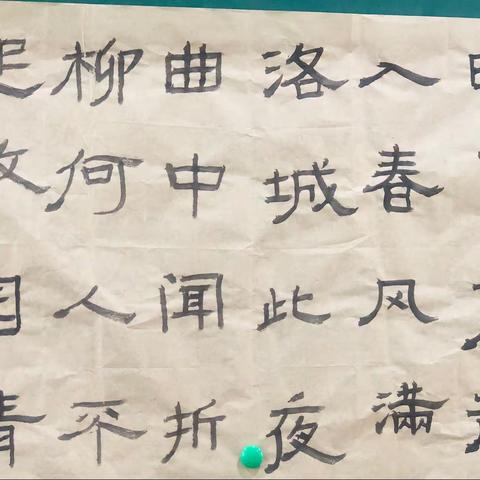 入春风满
洛城此夜
曲中闻折
柳何人不
起故园情